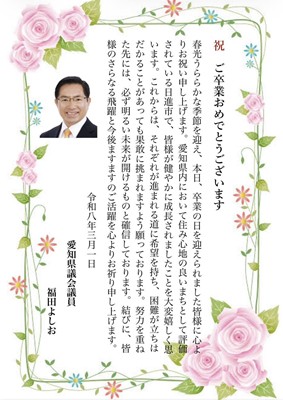 祝　ご卒業おめでとうございます
春光うららかな季節を迎え、本日、卒業の日を迎えられました皆様に心よ
りお祝い申し上げます。愛知県内において住み心地の良いまちとして評価
されている日進市で、皆様が健やかに成長されましたことを大変嬉しく思
います。これからは、それぞれが進まれる道に希望を持ち、困難が立ちは
だかることがあっても果敢に挑まれますよう願っております。努力を重ね
た先には、必ず明るい未来が開けるものと確信しております。結びに、皆
様のさらなる飛躍と今後ますますのご活躍を心よりお祈り申し上げます。
令和八年三月一日
愛知県議会議員
福田よしお